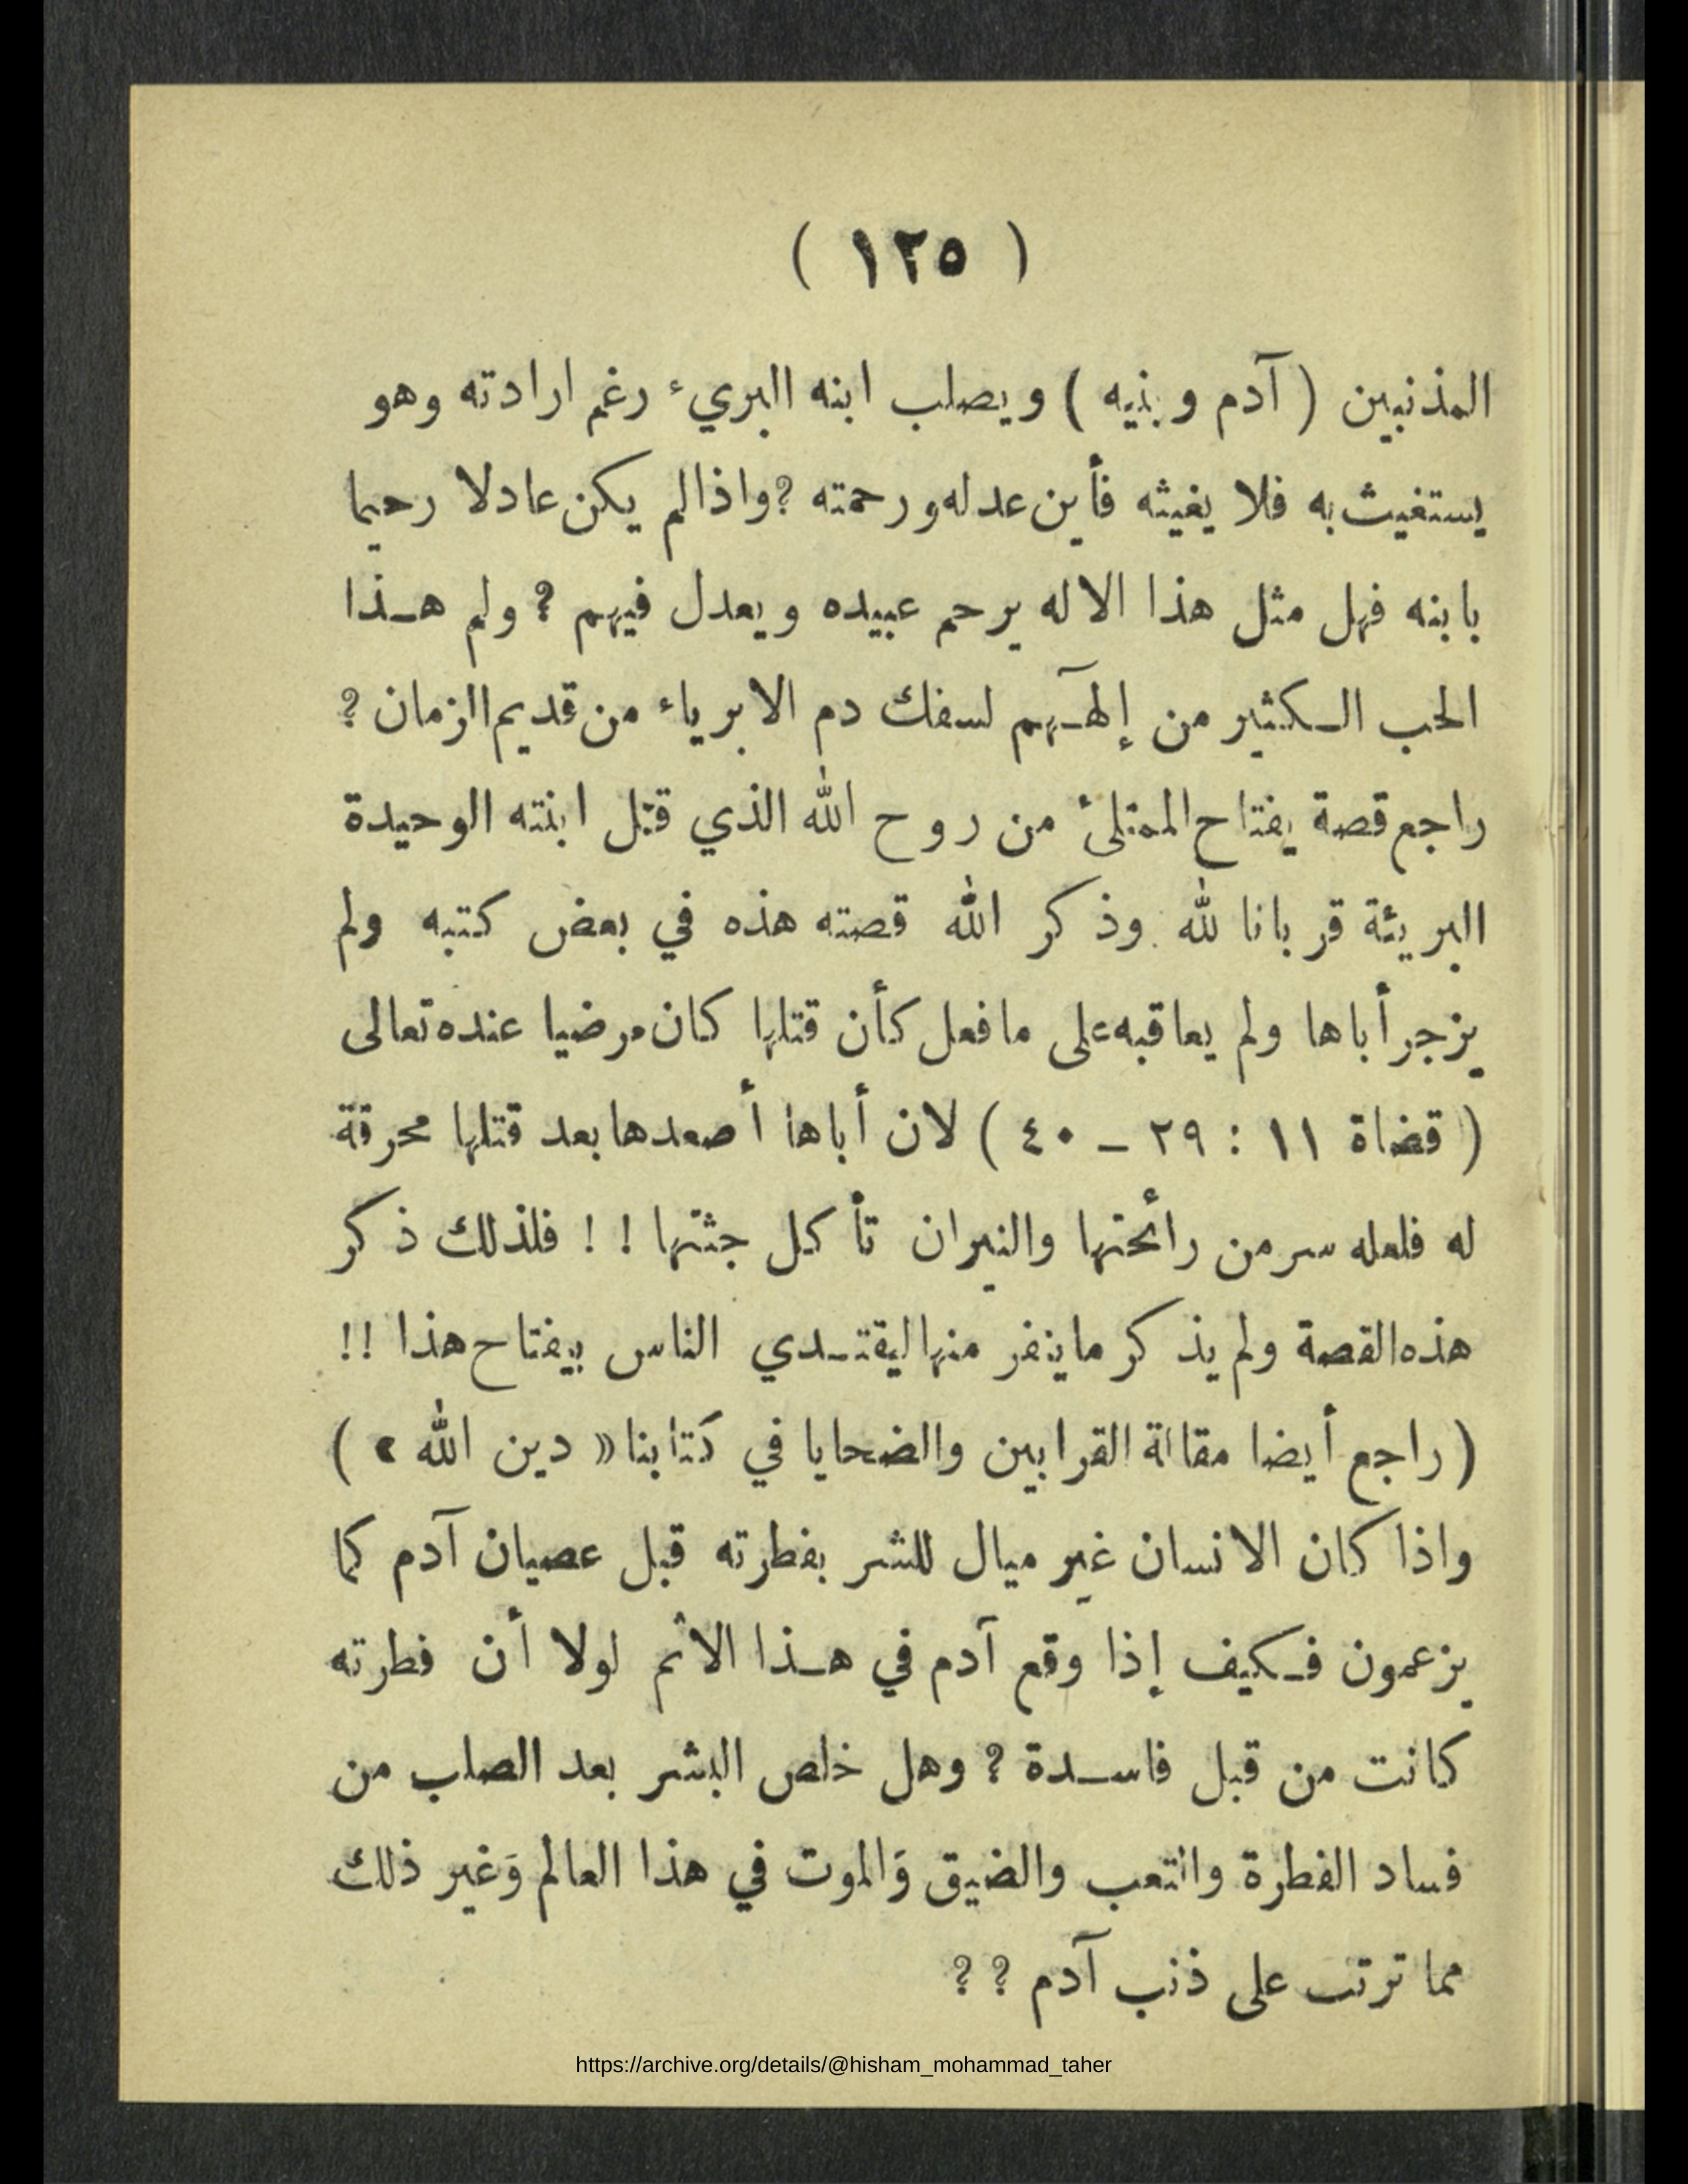 ( ١٢٥ )
المذنبين ( آدم وبنيه ) ويصلب ابنه البريء رغم ارادته وهو
يستغيث به فلا يغيثه فأين عدله ورحمته ؟ واذا لم يكن عادلا رحيما
بابنه فهل مثل هذا الاله يرحم عبيده ويعدل فيهم ؟ ولم هـذا
الحب الـكثير من إلهـٓهم لسفك دم الابرياء من قديم الزمان ؟
راجع قصة يفتاح الممتلئ من روح الله الذي قتل ابنته الوحيدة
البريئة قربانا لله وذكر الله قصته هذه في بعض كتبه ولم
يزجر أباها ولم يعاقبه على ما فعل كأن قتلها كان مرضيا عنده تعالى
( قضاة ١١ : ٢٩ – ٤٠ ) لان أباها أصعدها بعد قتلها محرقة
له فلعله سر من رائحتها والنيران تأكل جثتها ! ! فلذلك ذكر
هذه القصة ولم يذكر ما ينفر منها ليقتـدي الناس بيفتاح هذا !!
( راجع أيضا مقالة القرابين والضحايا في كتابنا « دين الله » )
واذا كان الانسان غير ميال للشر بفطرته قبل عصيان آدم كما
يزعمون فـكيف إذا وقع آدم في هـذا الاثم لولا أن فطرته
كانت من قبل فاسـدة ؟ وهل خلص البشر بعد الصلب من
فساد الفطرة والتعب والضيق وَالموت في هذا العالم وَغير ذلك
مما ترتب على ذنب آدم ؟ ؟
https://archive.org/details/@hisham_mohammad_taher